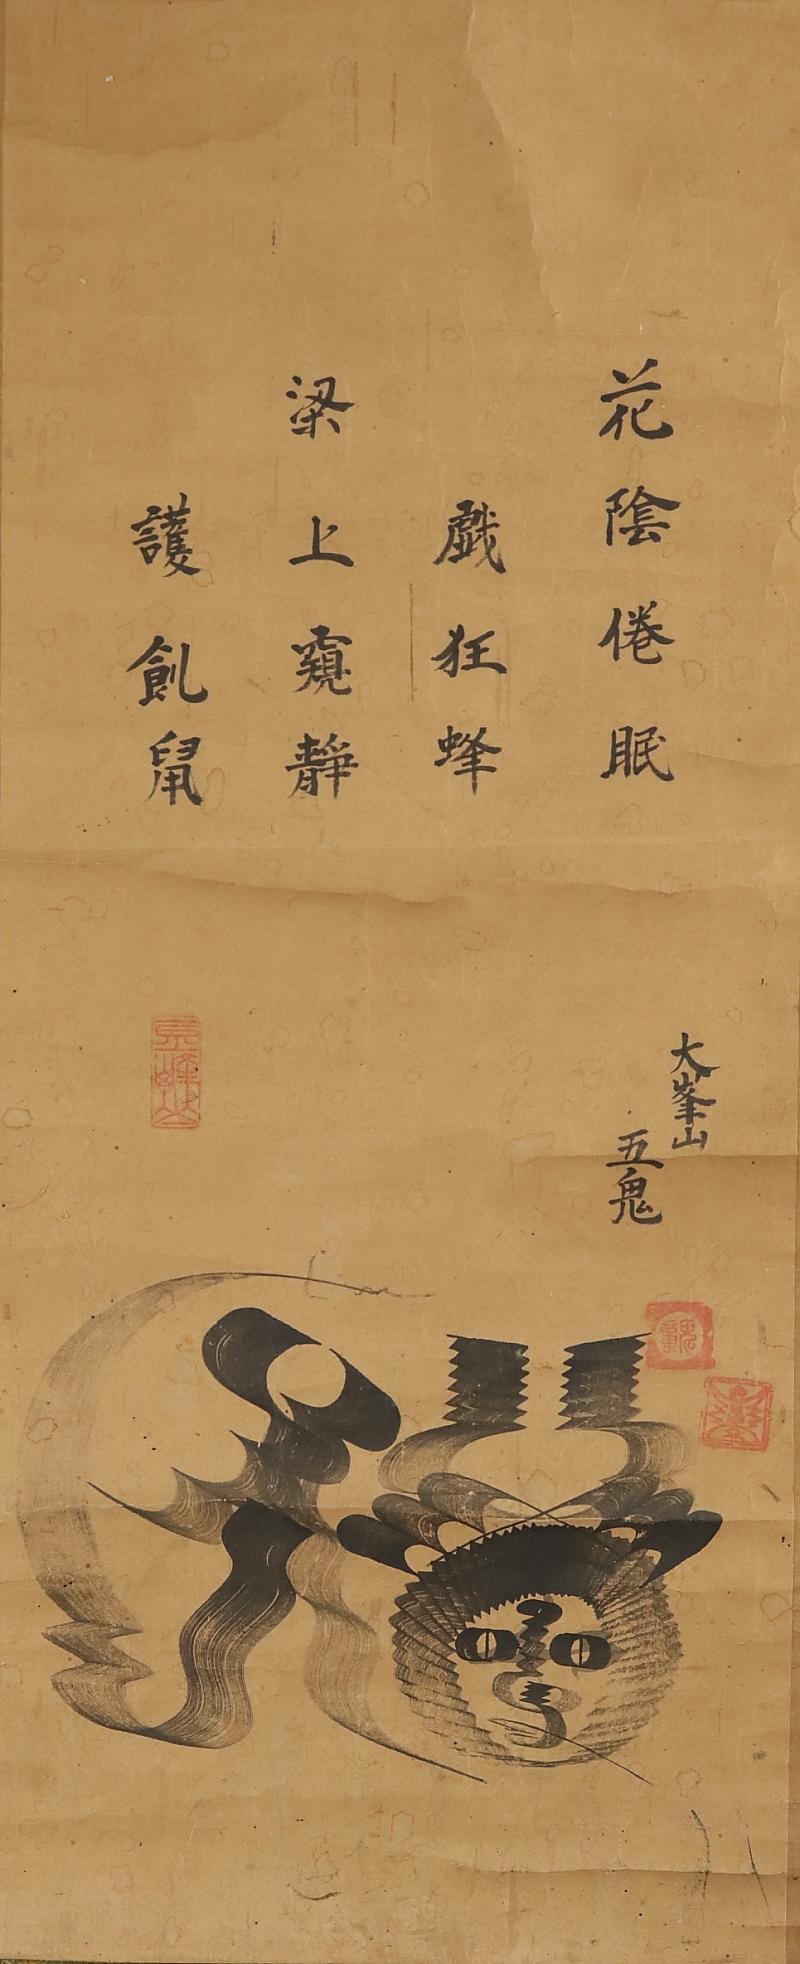 花陰倦眠
戯狂蜂
梁上窺靜
護飢鼠
大峯山
五鬼